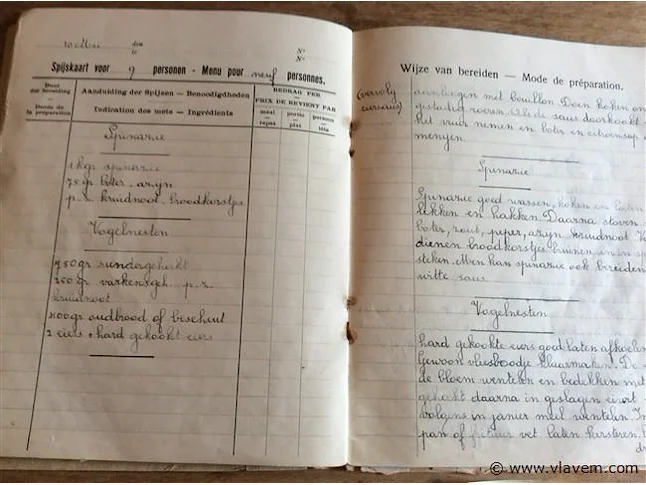 den
te
N°
N°
Spijskaart voor 9 personen - Menu pour neuf personnes.
Duur
der bereiding
Durée de
la préparation
Aanduiding der Spijzen — Benoodigdheden
Indication des mets — Ingrédients
BEDRAG PER
PRIX DE REVIENT PAR
maal
repas
portie
plat
persoon
tête
Spinazie
1 kgr spinazie
75 gr boter - azijn
p. z. kruidnoot - broodkorstjes
Vogelnesten
750 gr rundergehakt
250 gr varkensgeh. p. z.
kruidnoot
100 gr oudbrood of beschuit
2 eiers + hard gekookt eiers
Wijze van bereiden — Mode de préparation.
(vervolg
aanlengen met bouillon. Doen koken on
gestadig roeren. Als de saus doorkookt
het vuur nemen en boter en citroensap
mengen.
Spinazie
Spinazie goed wassen, koken en laten
lekken en hakken. Daarna stoven
boter, zout, peper, azijn kruidnoot. V
dienen broodkorstjes bruinen, en in sp
steken. Men kan spinazie ook bereiden
witte saus
Vogelnesten
hard gekookte eiers goed laten afkoelen
Gewoon vleesbrood klaarmaken. De
de bloem wentelen en bedekken met
gehakt daarna in geslagen eiwit
volgens in panier meel wentelen. In
pan of frituur vet laten korsteren.
© www.vlavem.com